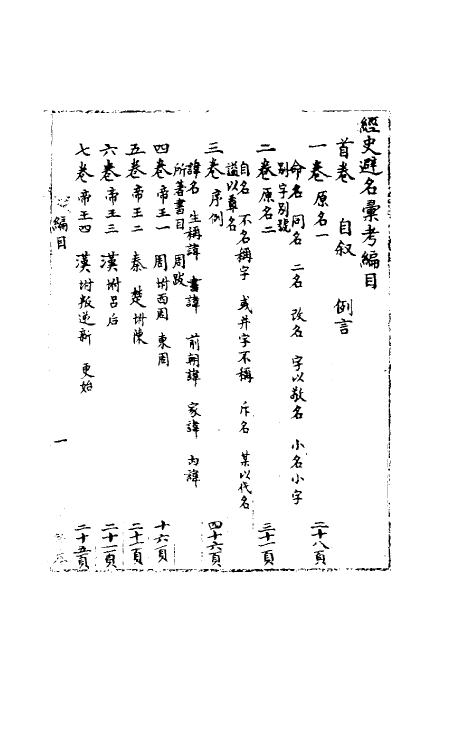 經史避名彙考編目
首卷 自叙 例言
一卷原名一 二十八頁
命名 同名 二名 改名 字以敬名 小名小字
別字別號
二卷原名二 三十一頁
自名 不名稱字 或并字不稱 斥名 某以代名
諡以尊名
三卷序例 四十六頁
諱名 生稱諱 書諱 前朝諱 家諱 內諱
所著書目 周政
四卷帝王一 周坿西周 東周 十六頁
五卷帝王二 秦 楚坿陳 二十一頁
六卷帝王三 漢坿呂后 二十一頁
七卷帝王四 漢坿叛逆新 更始 二十五頁
編目
一